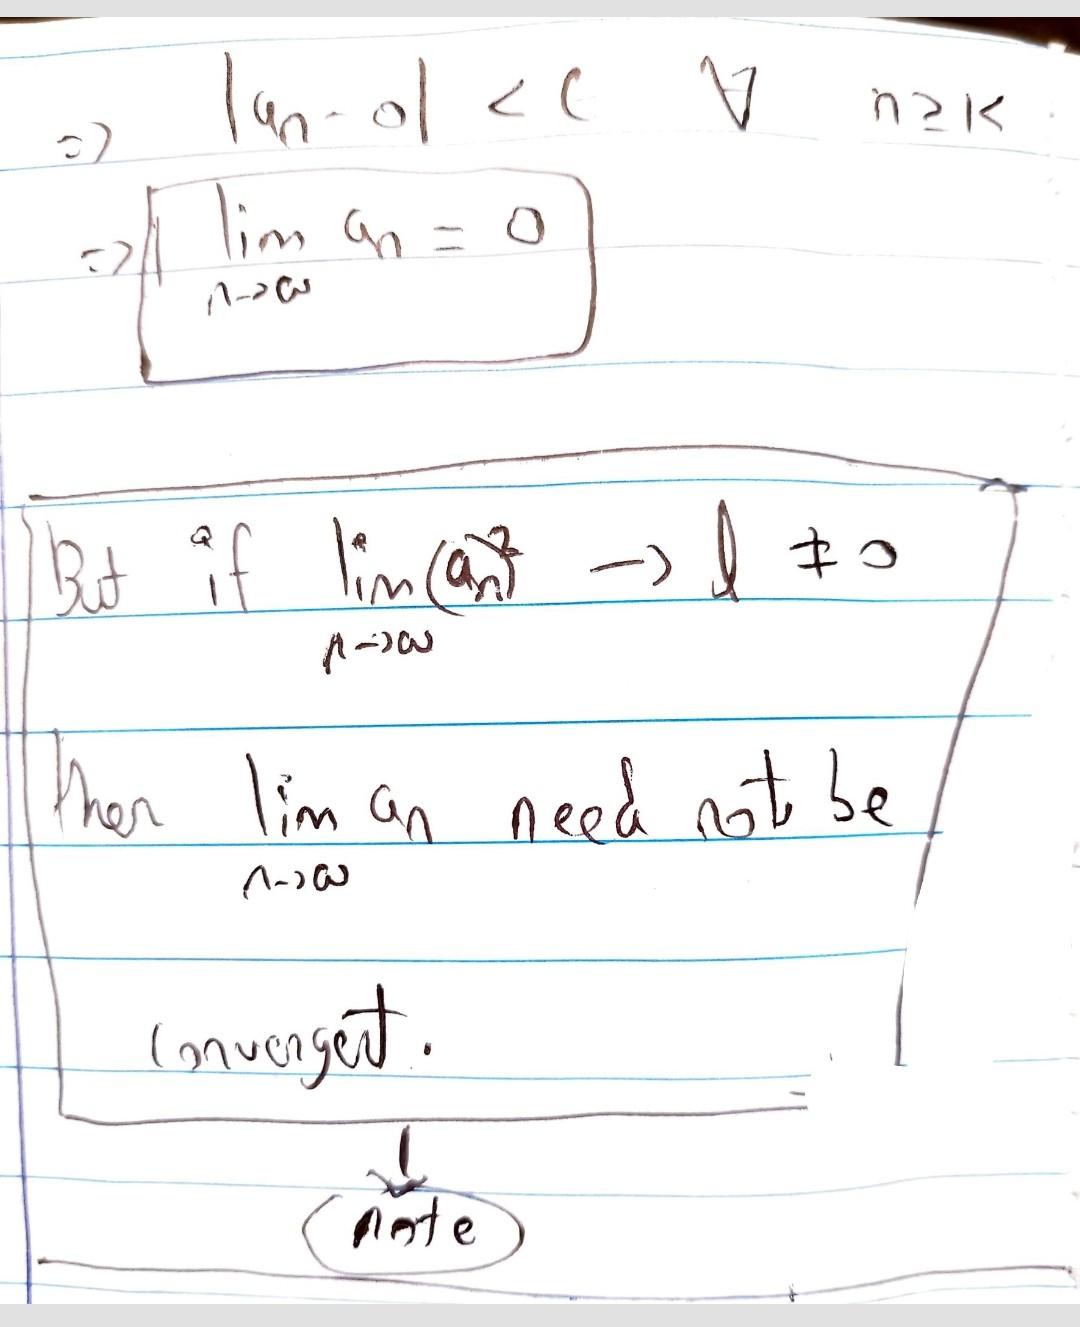 => |an - 0| < ε ∀ n ≥ K
=> lim an = 0
n->∞
But if lim (an)² -> l ≠ 0
n->∞
then lim an need not be
n->∞
convergent.
note